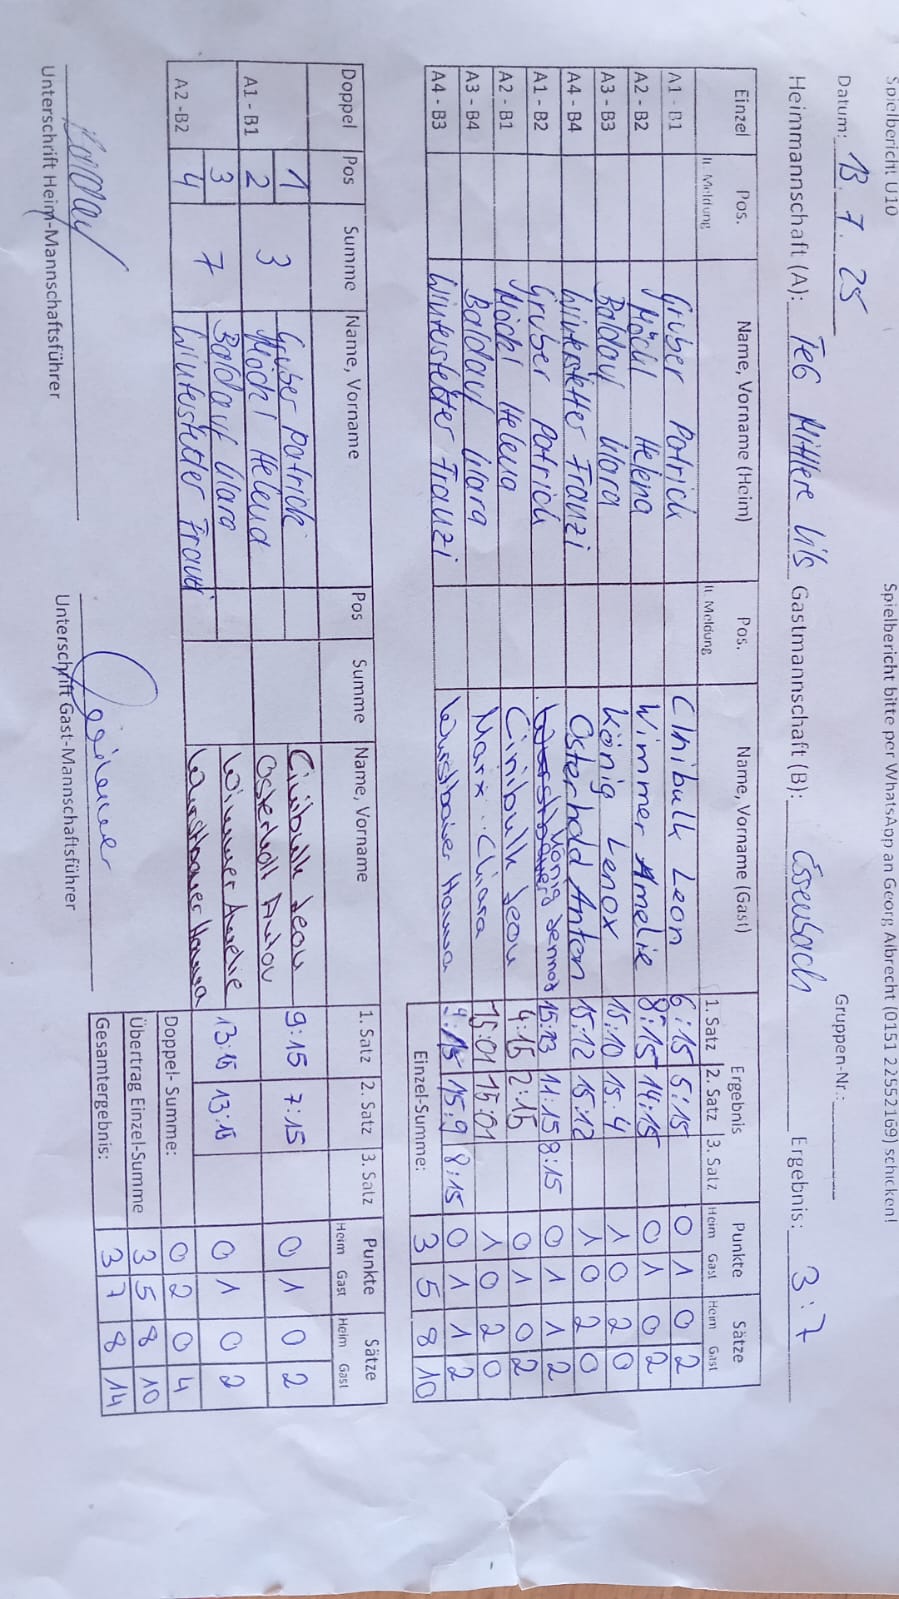 Spielbericht U10 Spielbericht bitte per WhatsApp an Georg Albrecht (0151 22552169) schicken!
Datum: 13. 7. 25 Gruppen-Nr.:
Heimmannschaft (A): TeG Mittlere Vils Gastmannschaft (B): Essenbach Ergebnis: 3:7
Einzel Pos. lt. Meldung Name, Vorname (Heim) Pos. lt. Meldung Name, Vorname (Gast) Ergebnis 1. Satz 2. Satz 3. Satz Punkte Heim Gast Sätze Heim Gast
A1 - B1 Gruber Patrick Cinibulk Leon 6:15 5:15 0 1 0 2
A2 - B2 Möchl Helena Wimmer Amelie 8:15 14:15 0 1 0 2
A3 - B3 Baldauf Klara König Lenox 15:10 15:4 1 0 2 0
A4 - B4 Winterstetter Franzi Osterhold Anton 15:12 15:12 1 0 2 0
A1 - B2 Gruber Patrick König 15:13 1:15 8:15 0 1 1 2
A2 - B1 Möchl Helena Cinibulk Leon 4:15 2:15 0 1 0 2
A3 - B4 Baldauf Klara Marx Chiara 15:01 15:01 1 0 2 0
A4 - B3 Winterstetter Franzi Hanna 9:15 15:9 8:15 0 1 1 2
Einzel-Summe: 3 5 8 10
Doppel Pos Summe Name, Vorname Pos Summe Name, Vorname 1. Satz 2. Satz 3. Satz Punkte Heim Gast Sätze Heim Gast
A1 - B1 1 3 Gruber Patrick Cinibulk Leon 9:15 7:15 0 1 0 2
2 Möchl Helena Anton
3 7 Baldauf Klara Wimmer Amelie 13:15 13:15 0 1 0 2
A2 - B2 4 Winterstetter Hanna
Doppel- Summe: 0 2 0 4
Übertrag Einzel-Summe 3 5 8 10
Gesamtergebnis: 3 7 8 14
Unterschrift Heim-Mannschaftsführer Unterschrift Gast-Mannschaftsführer